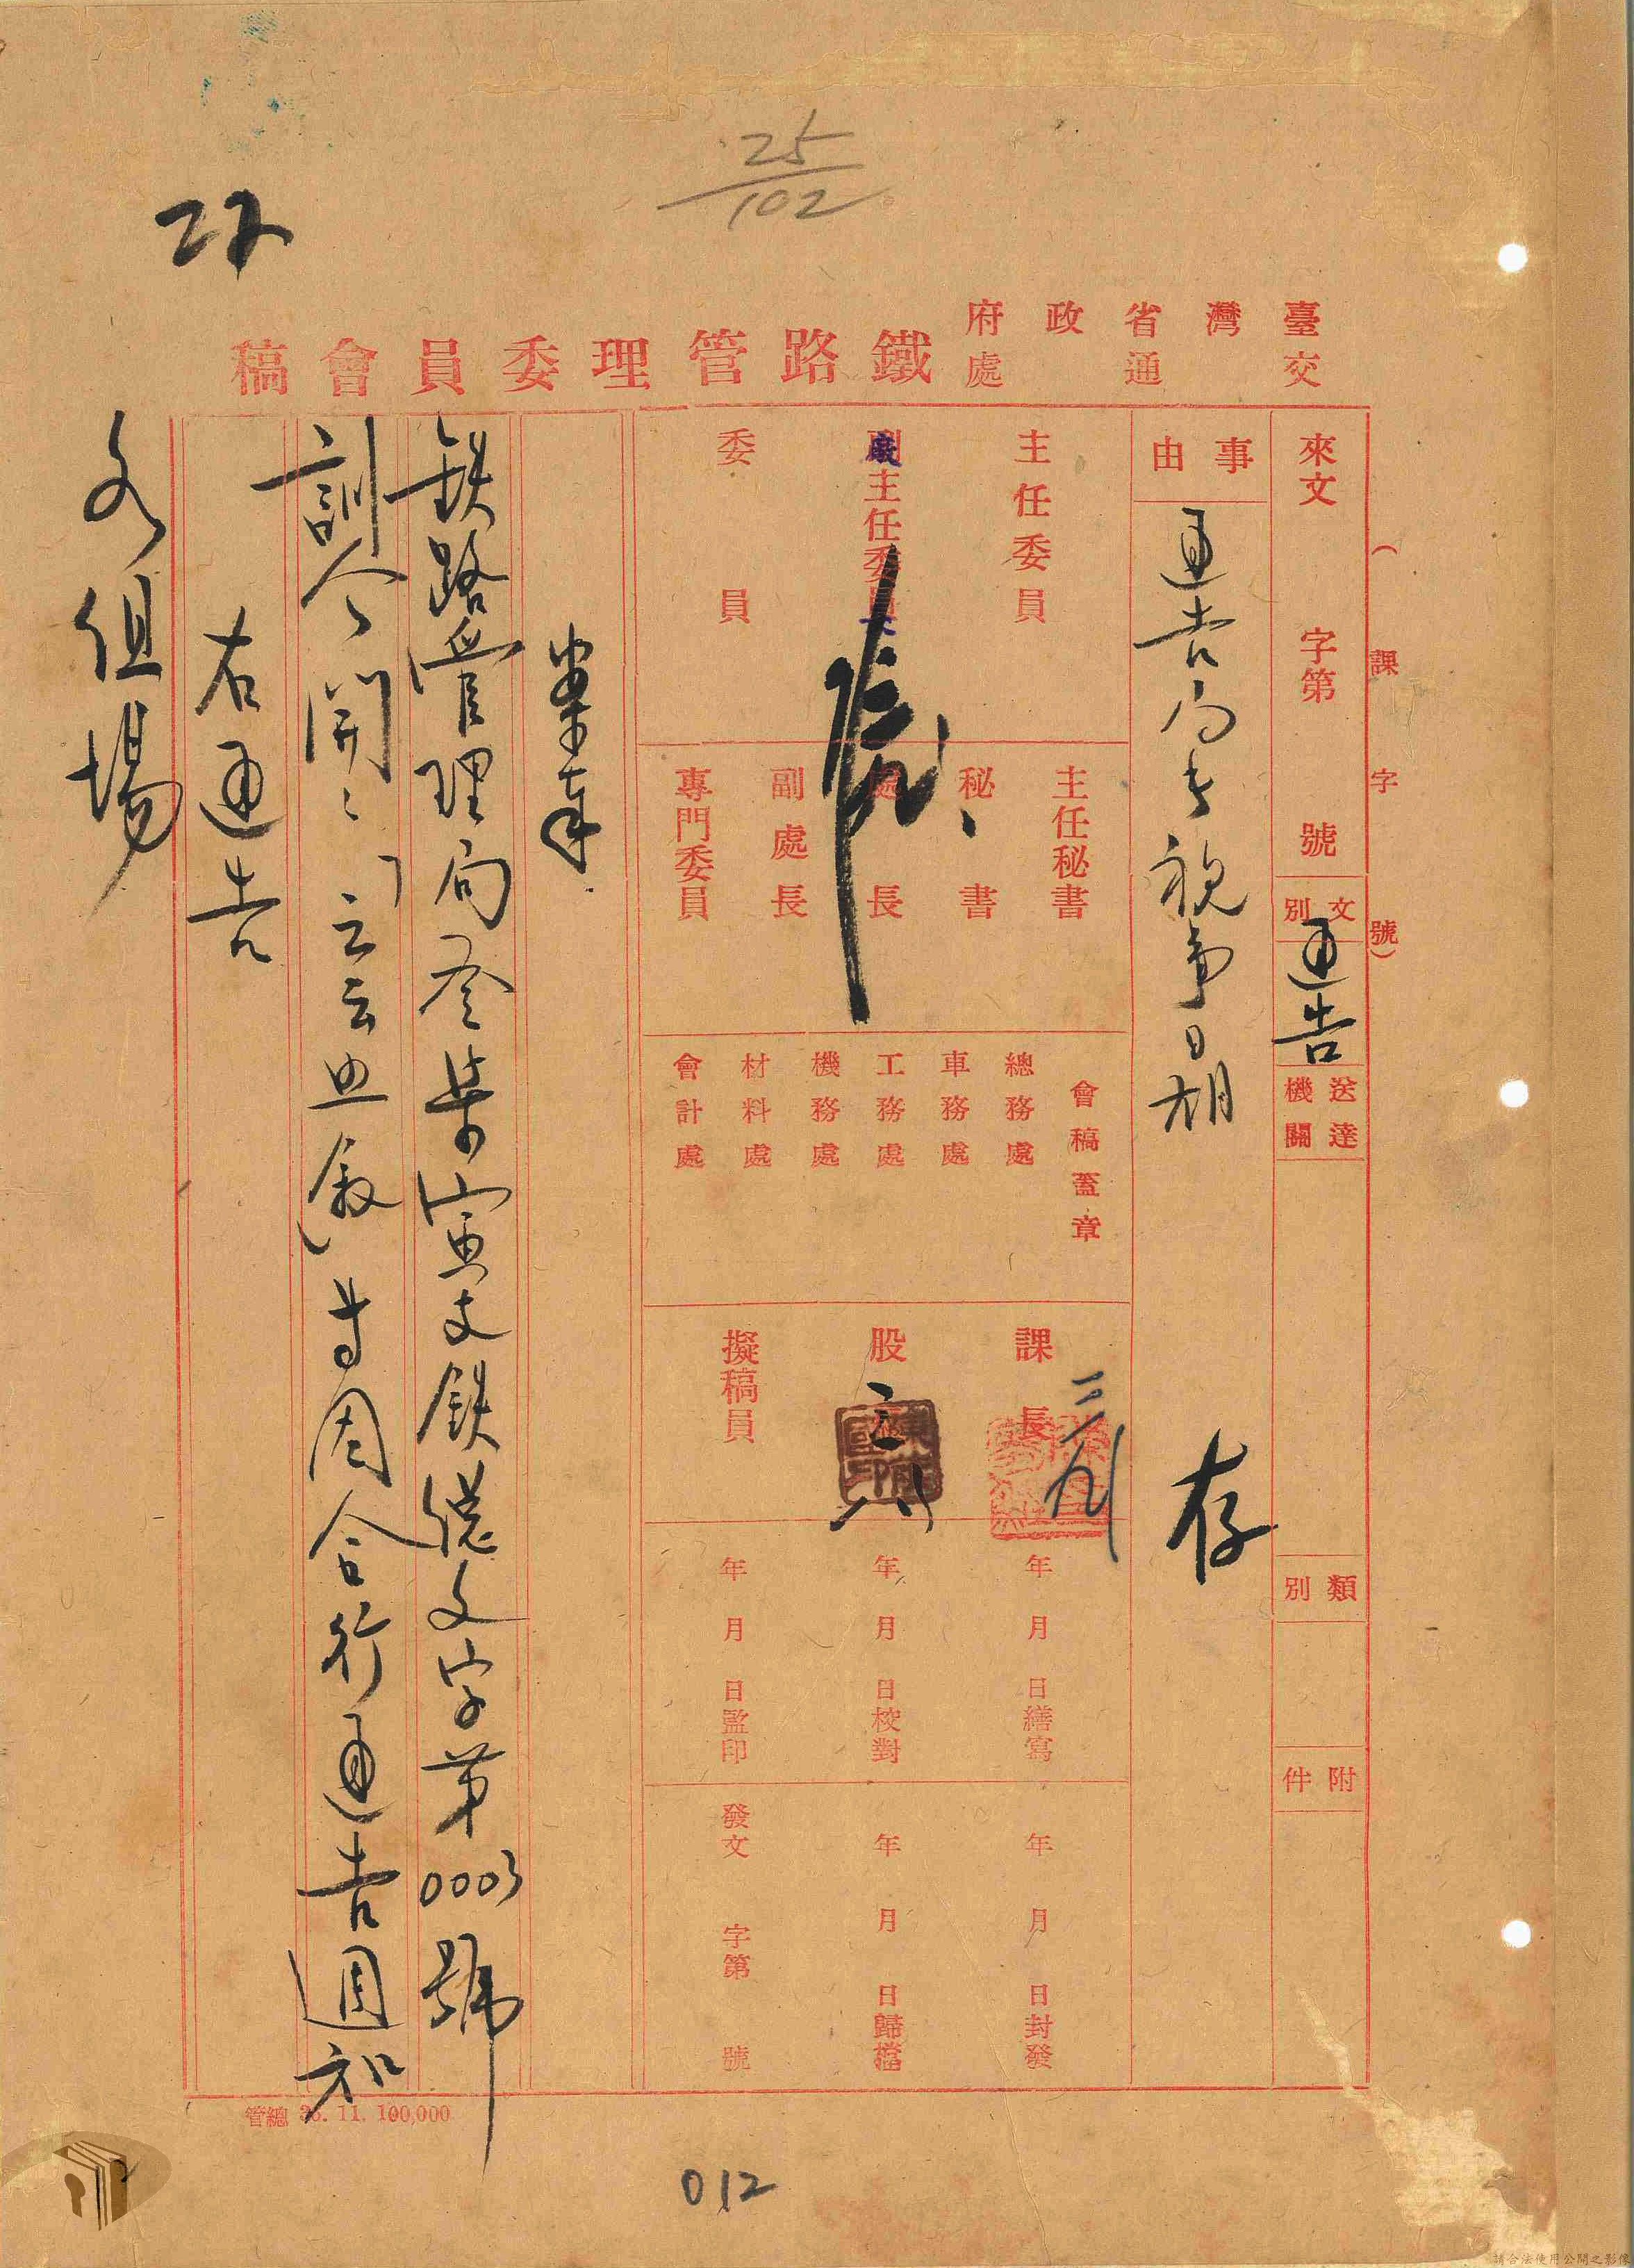 25
102
臺灣省政府
交通處
鐵路管理委員會稿
(課字號)
來文 字第 號
文別
通告
送達機關
類別
附件
事由
通告局長視事日期
存
主任委員
主任委員
委員
廠
主任秘書
秘書
處長
副處長
專門委員
會稿蓋章
總務處
車務處
工務處
機務處
材料處
會計處
課長
三九
股
三八
擬稿員
年 月 日繕寫
年 月 日校對
年 月 日監印
年 月 日封發
年 月 日歸檔
發文 字第 號
案奉
鉄路管理局叁柒寅支鉄總文字第0003號
訓令開:「云云照敘」等因合行通告週知
右通告
各組場
管總 36. 11. 100,000
012
請合法使用公開之影像